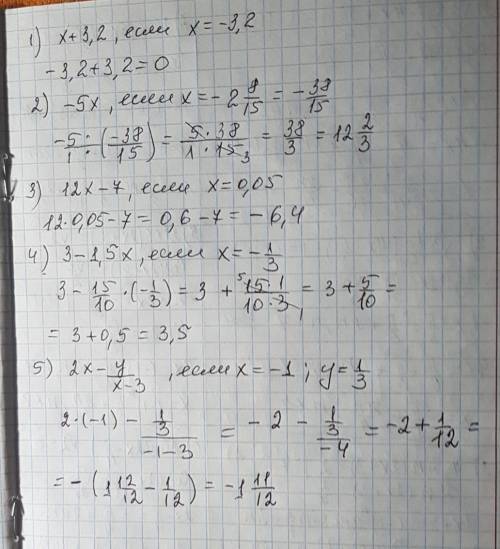 1) x+3,2, если x=-3,2
-3,2+3,2=0
2) -5x, если x=-2 8/15 = -38/15
-5/1 : (-38/15) = 5·38/1·15 3 = 38/3 = 12 2/3
3) 12x-7, если x=0,05
12·0,05-7=0,6-7=-6,4
4) 3-1,5x, если x=-1/3
3-15/10·(-1/3)=3+5 15·1/10·3 1=3+5/10=
=3+0,5=3,5
5) 2x-y/x-3, если x=-1; y=1/3
2·(-1)-1/3/-1-3=-2-1/3/-4=-2+1/12=
=-(1 12/12-1/12)=-1 11/12